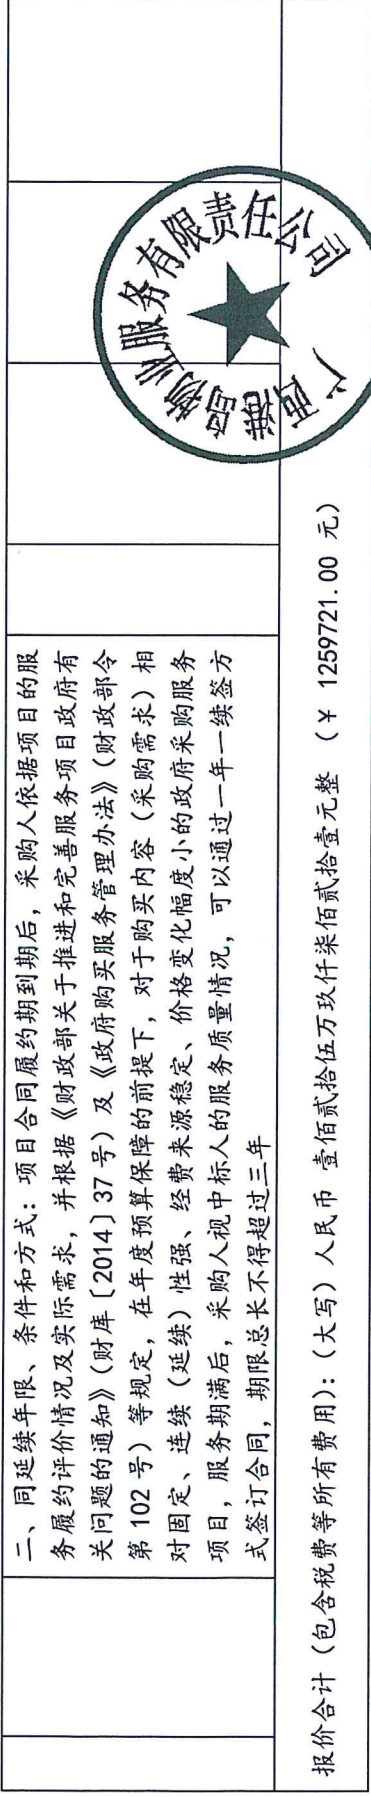 二、同延续年限、条件和方式：项目合同履约期到期后，采购人依据项目的服
务履约评价情况及实际需求，并根据《财政部关于推进和完善服务项目政府有
关问题的通知》（财库〔2014〕37 号）及《政府购买服务管理办法》（财政部令
第 102 号）等规定，在年度预算保障的前提下，对于购买内容（采购需求）相
对固定、连续（延续）性强、经费来源稳定、价格变化幅度小的政府采购服务
项目，服务期满后，采购人视中标人的服务质量情况，可以通过一年一续签方
式签订合同，期限总长不得超过三年
报价合计（包含税费等所有费用）：（大写）人民币 壹佰贰拾伍万玖仟柒佰贰拾壹元整 （￥ 1259721.00 元）
广西 物业服务有限责任公司